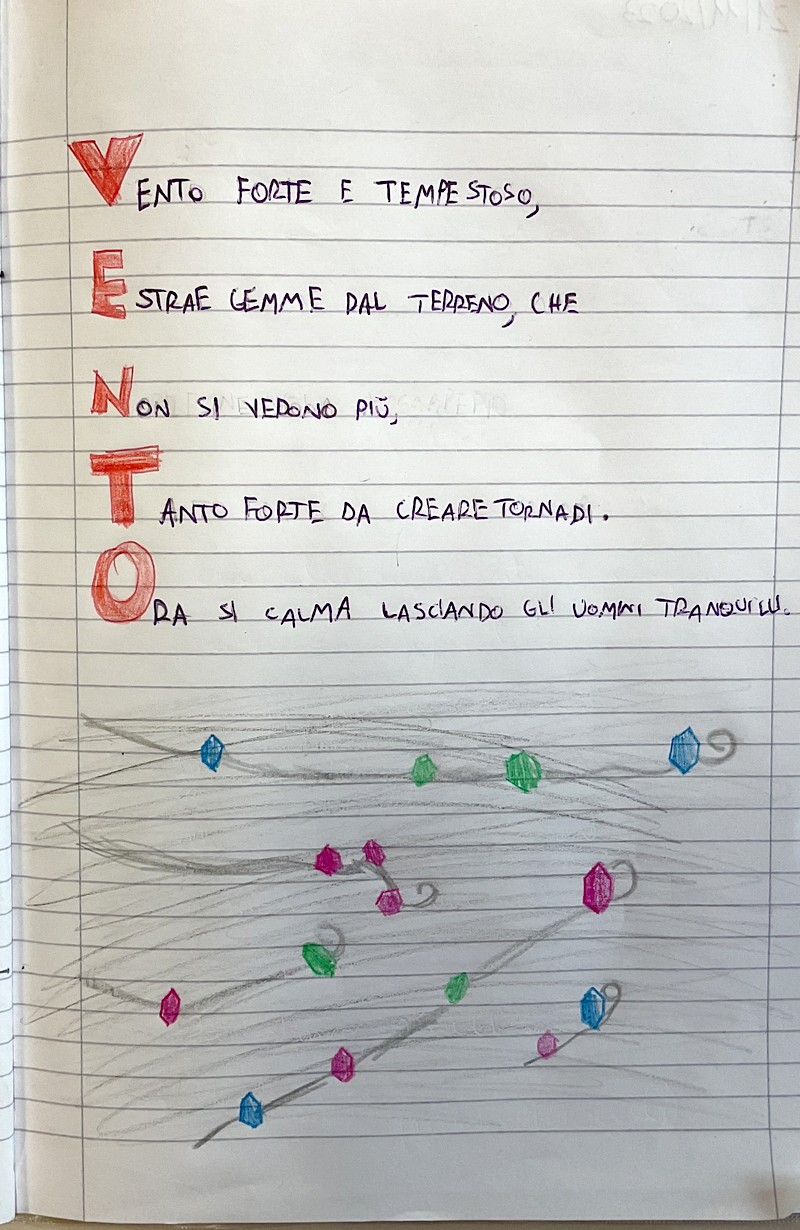 VENTO FORTE E TEMPESTOSO,
ESTRAE GEMME DAL TERRENO, CHE
NON SI VEDONO PIÙ,
TANTO FORTE DA CREARE TORNADI.
ORA SI CALMA LASCIANDO GLI UOMINI TRANQUILLI.